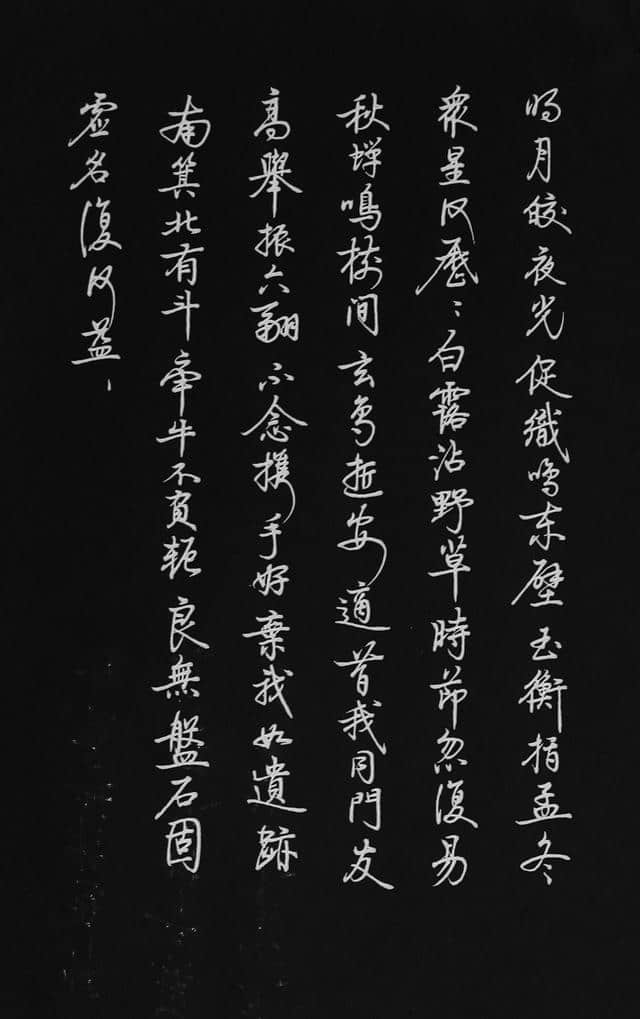 明月皎夜光促織鳴東壁玉衡指孟冬
眾星何歷〻白露沾野草時節忽復易
秋蟬鳴樹间玄鸟逝安適昔我同門友
高舉振六翮不念攜手好棄我如遺跡
南箕北有斗牽牛不負軛良無盤石固
虛名復何益、